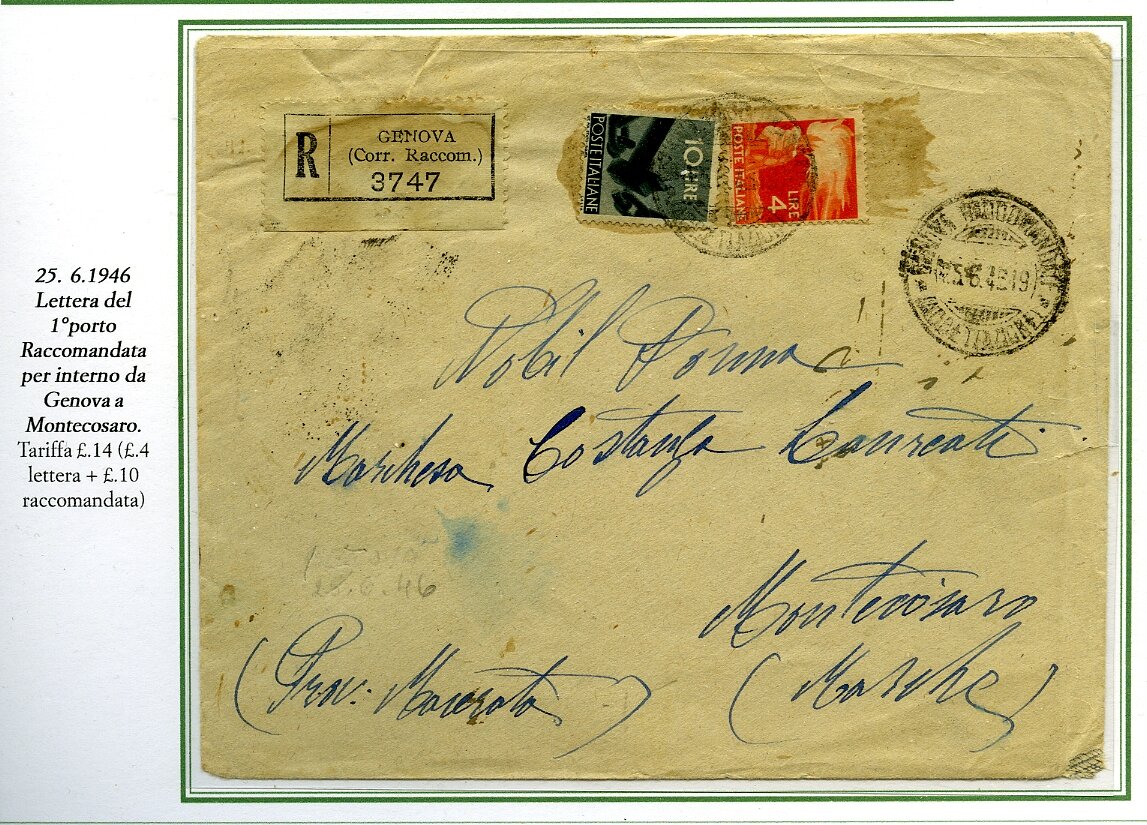 25. 6.1946
Lettera del
1°porto
Raccomandata
per interno da
Genova a
Montecosaro.
Tariffa £.14 (£.4
lettera + £.10
raccomandata)
R
GENOVA
(Corr. Raccom.)
3747
POSTE ITALIANE
10 LIRE
POSTE ITALIANE
LIRE
4
GENOVA RACCOMANDATE
Nobil Donna
Marchesa Costanza Laureati
25.6.46
Montecosaro
(Marche)
(Prov: Macerata)